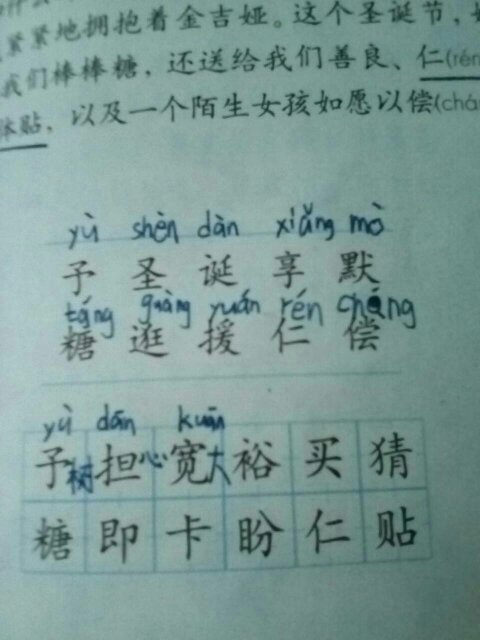 紧紧地拥抱着金吉娅。这个圣诞节，
我们棒棒糖，还送给我们善良、仁(rén
体贴，以及一个陌生女孩如愿以偿(chá
yù shèn dàn xiǎng mò
予 圣 诞 享 默
táng guàng yuán rén cháng
糖 逛 援 仁 偿
yù dān kuān
予树 担心 宽大 裕 买 猜
糖 即 卡 盼 仁 贴